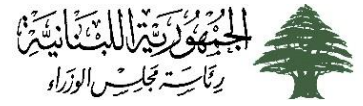 الجُمهُوريَّة اللبنَانيَّة
رئاسَة مجلِس الوزراء